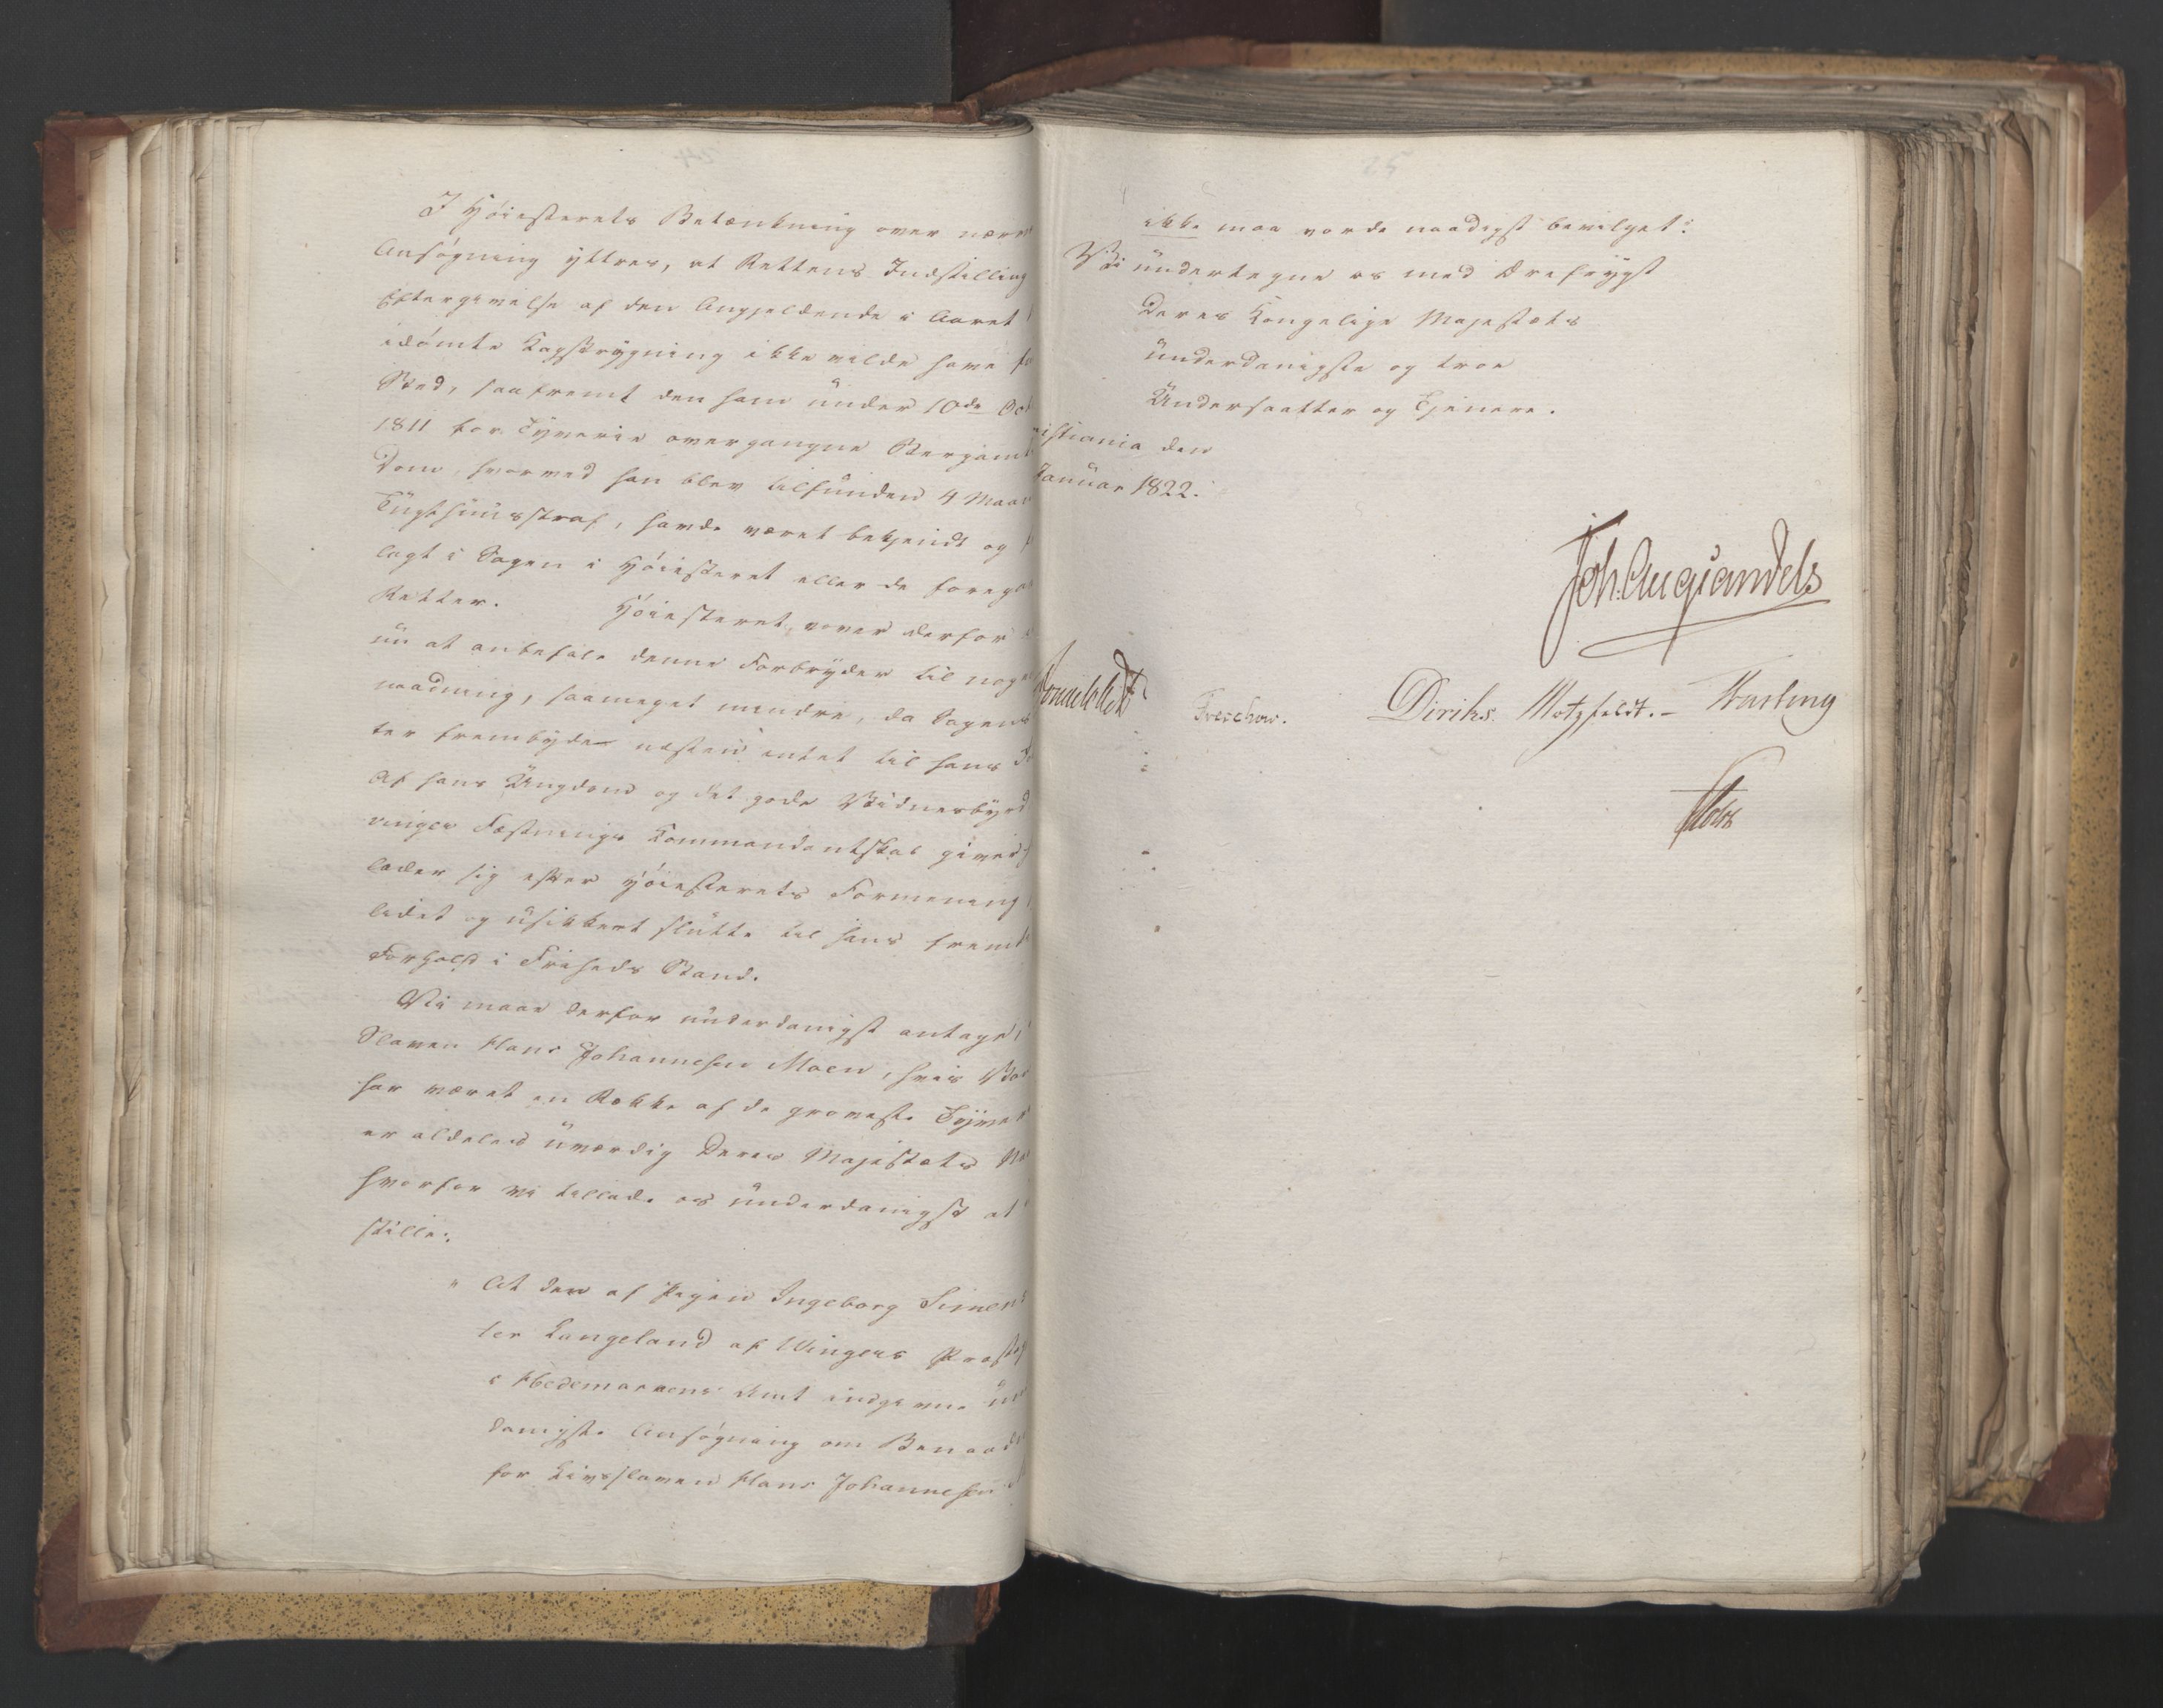 I Høiesterets Betænkning over nær
Ansøgning yttres, at Rettens Indstilling
Eftergivelse af den Angjeldende i Aaret
idømte Kagstrygning ikke vilde have
Sted, saafremt den ham under 10de Oct
1811 for Tyverie overgangne Bergamts
Dom, hvorved han blev tilfunden 4 Maa
Tugthuusstraf, havde været bekjendt og
lagt i Sagen i Høiesteret eller de forega
Retter. Høiesteret vover derfor
nu at anbefale denne Forbryder til nog
naadning, saameget mindre, da Sagens
ter frembyde næsten intet til hans Fo
Af hans Ungdom og det gode Vidnesbyrd
vinger Fæstnings Kommandantskab giver
lader sig efter Høiesterets Formening
lidet og usikkert slutte til hans fremti
Forhold i Friheds Stand.
Vi maae derfor underdanigst antage,
Slaven Hans Johannesen Moen, hvis
har været en Række af de groveste Tyve
er aldeles uværdig Deres Majestæts Na
hvorfor vi tillade os underdanigst at
stille:
" At den af Pigen Ingeborg Simens
ter Kongeland af Wingers Præsteg
i Hedemarkens Amt indgivne un
danigste Ansøgning om Benaad
for Livsslaven Hans Johannesen
25
ikke maa vorde naadigst bevilget:
Vi undertegne os med Ærefrygt
Deres Kongelige Majestæts
underdanigste og troe
Undersaatter og Tjenere.
istiania den
Januar 1822.
Joh. Aug. Sandels
Sommerhielm
Treschow. Diriks. Motzfeldt. – Fasting
Holst